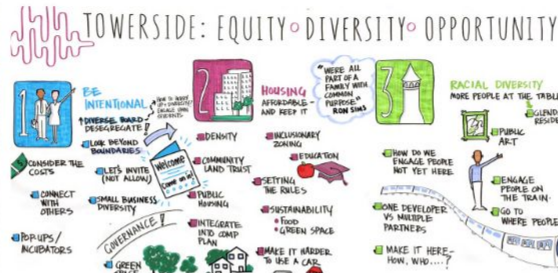 TOWERSIDE: EQUITY ◦ DIVERSITY ◦ OPPORTUNITY
1
BE
INTENTIONAL
DIVERSE BOARD
DESEGREGATE!
LOOK BEYOND
BOUNDARIES
CONSIDER THE
COSTS
LET'S INVITE
(NOT ALLOW)
CONNECT
WITH
OTHERS
SMALL BUSINESS
DIVERSITY
POPUPS/
INCUBATORS
GOVERNANCE!
GREEN
Welcome
Come on in!
2
HOUSING
AFFORDABLE-
AND KEEP IT
DENSITY
COMMUNITY
LAND TRUST
PUBLIC
HOUSING
INTEGRATE
INTO COMP
PLAN
INCLUSIONARY
ZONING
EDUCATION
SETTING
THE RULES
SUSTAINABILITY
• FOOD
• GREEN SPACE
MAKE IT HARDER
TO USE A CAR
"WE'RE ALL
PART OF A
FAMILY WITH
COMMON
PURPOSE."
RON SIMS
3
RACIAL DIVERSITY
MORE PEOPLE AT THE TABL
GLEND
RESIDE
PUBLIC
ART
HOW DO WE
ENGAGE PEOPLE
NOT YET HERE
ENGAGE
PEOPLE ON
THE TRAIN
GO TO
WHERE PEOPLE
ONE DEVELOPER
VS MULTIPLE
PARTNERS
MAKE IT HERE-
HOW, WHO....?